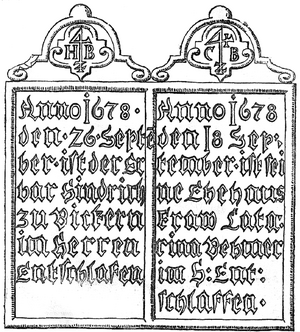 HB
Anno 1678.
den. 26. Sept
ber. ist der Er
bar Hindrich
zu Virkern
im Herren
Entschlafen
CB
Anno 1678
den 18 Sep:
tember. ist sei
ne Ehehaus
Fraw Cata
rina Vehmer
im H: Ent:
schlaffen.